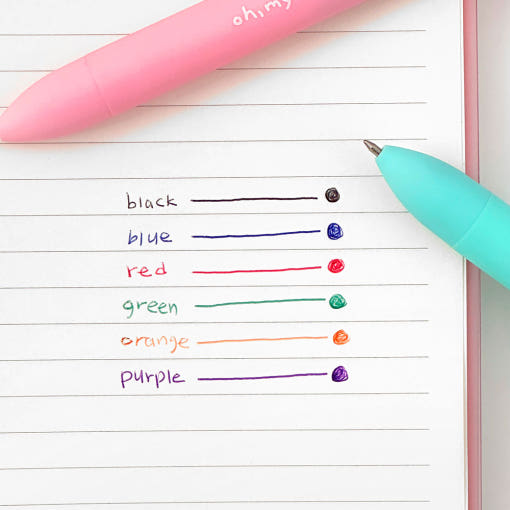 ohimy
black
blue
red
green
orange
purple